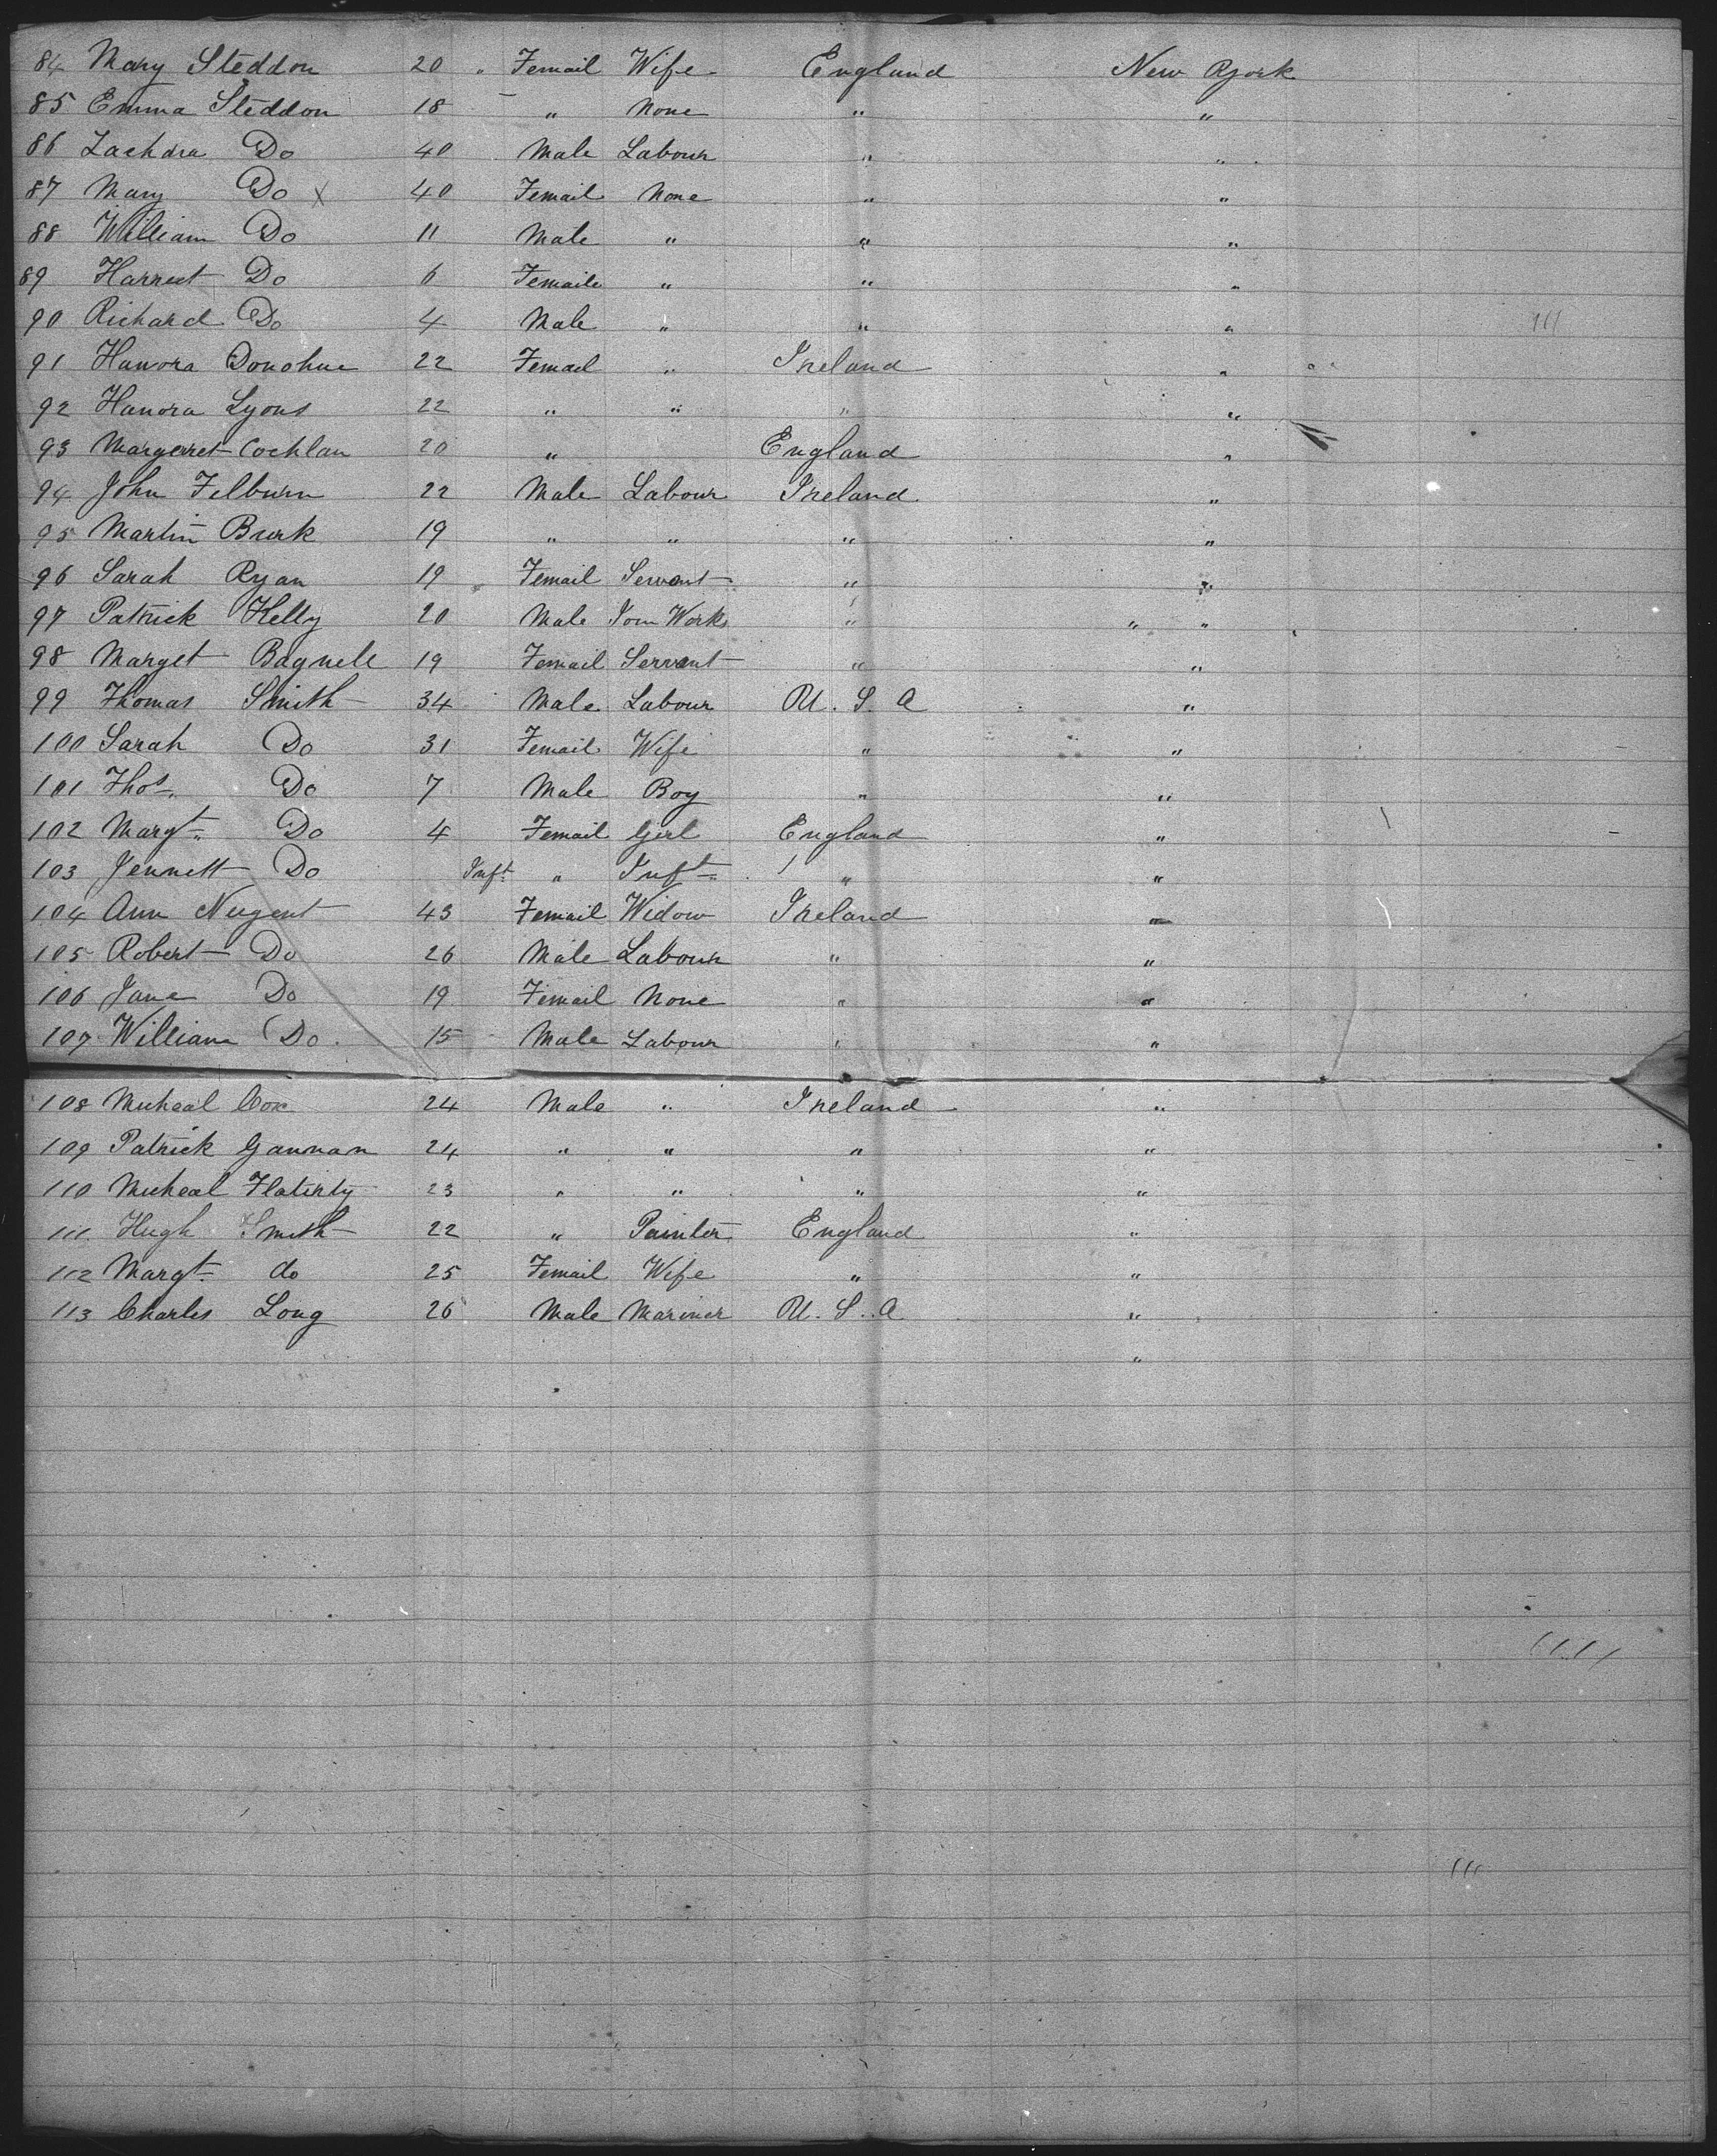 84 Mary Steddon 20 " Femail Wife England New York
85 Emma Steddon 18 " None " "
86 Zachdra Do 40 Male Labour " "
87 Mary Do X 40 Femail None " "
88 William Do 11 Male " " "
89 Harriet Do 6 Femaile " " "
90 Richard Do 4 Male " " "
91 Hanora Donohue 22 Femail " Ireland "
92 Hanora Lyons 22 " " " "
93 Margerret Cochlan 20 " England "
94 John Felburn 22 Male Labour Ireland "
95 Martin Burk 19 " " " "
96 Sarah Ryan 19 Femail Servant " "
97 Patrick Kelly 20 Male Works " " "
98 Marget Bagnele 19 Femail Servant " "
99 Thomas Smith 34 Male Labour U. S. A "
100 Sarah Do 31 Femail Wife " "
101 Thos. Do 7 Male Boy " "
102 Margt. Do 4 Femail Girl England "
103 Jennett Do Inft. " Inft. " "
104 Ann Nugent 43 Femail Widow Ireland "
105 Robert Do 26 Male Labour " "
106 Jane Do 19 Femail None " "
107 William Do 15 Male Labour " "
108 Micheal Cox 24 Male " Ireland "
109 Patrick Gannan 24 " " " "
110 Micheal Flaterty 23 " " " "
111 Hugh Smith 22 " Painter England "
112 Margt. do 25 Femail Wife " "
113 Charles Long 26 Male Mariner U. S. A "
"